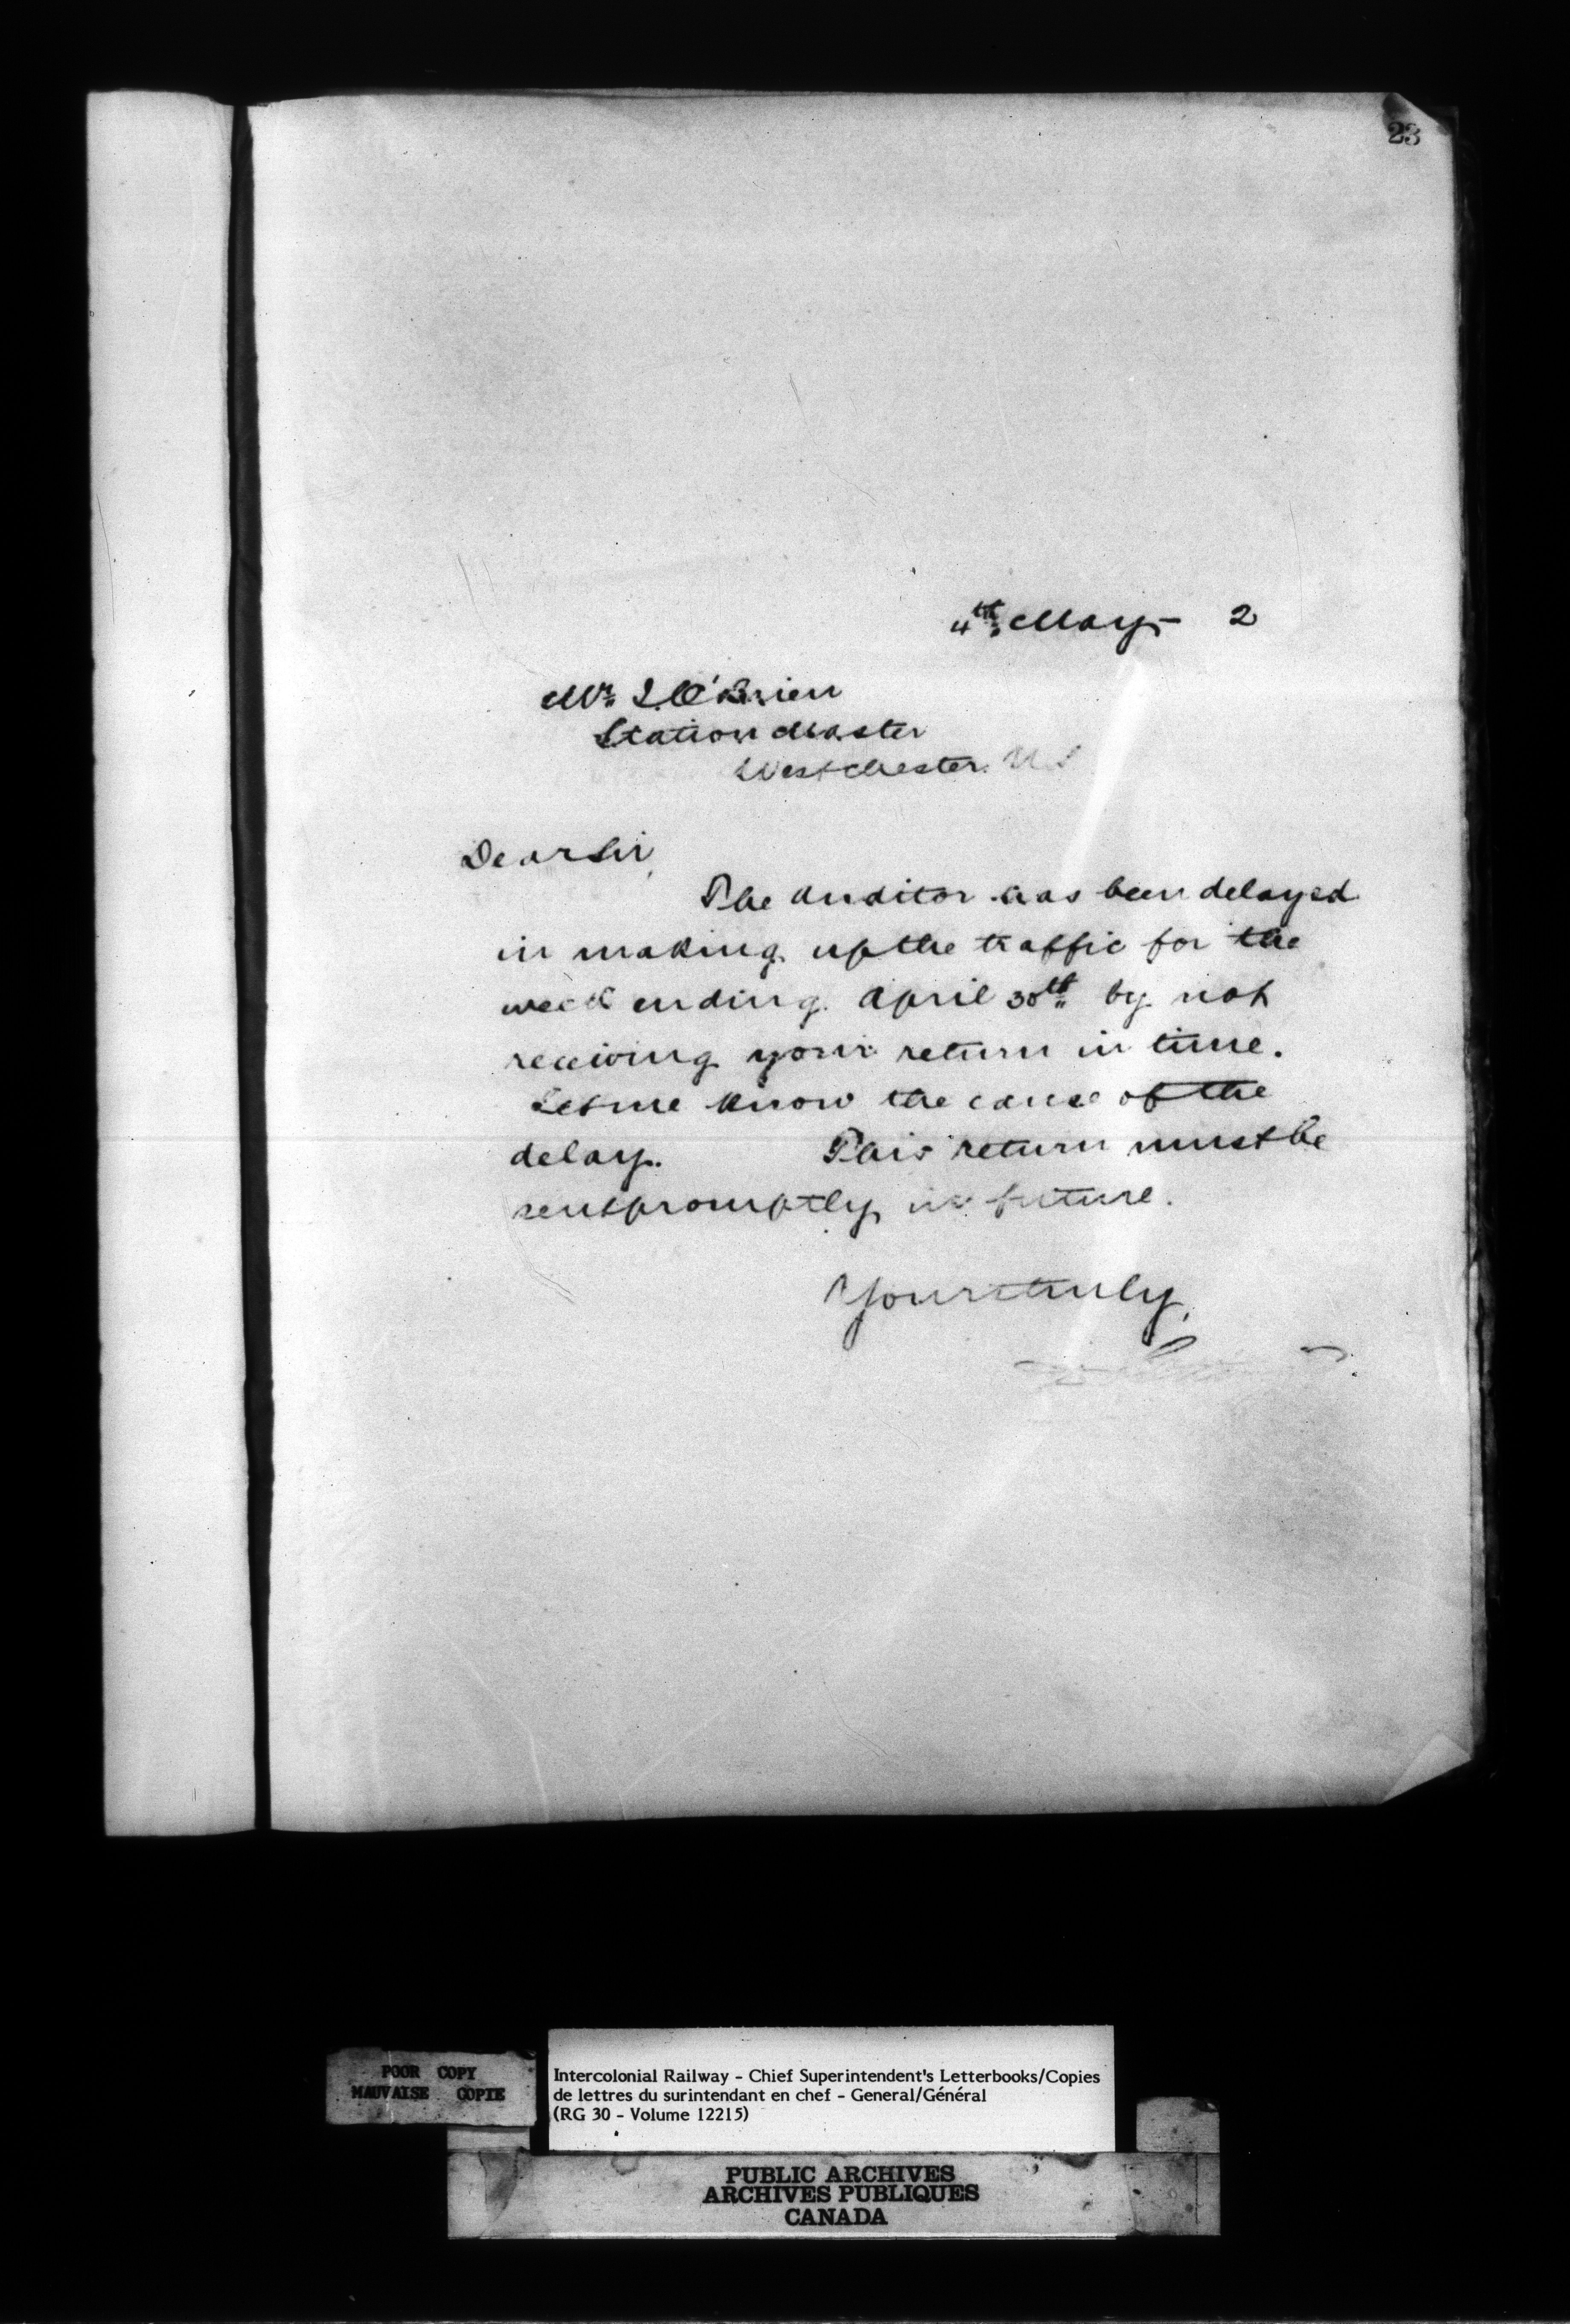 23
4th May 2
Mr. J. O'Brien
Station Master
Westchester N.S
Dear Sir,
The Auditor has been delayed
in making up the traffic for the
week ending April 30th by not
receiving your return in time.
Let me know the cause of the
delay. This return must be
sent promptly in future.
Yours truly,
POOR COPY
MAUVAISE COPIE
Intercolonial Railway - Chief Superintendent's Letterbooks/Copies
de lettres du surintendant en chef - General/Général
(RG 30 - Volume 12215)
PUBLIC ARCHIVES
ARCHIVES PUBLIQUES
CANADA